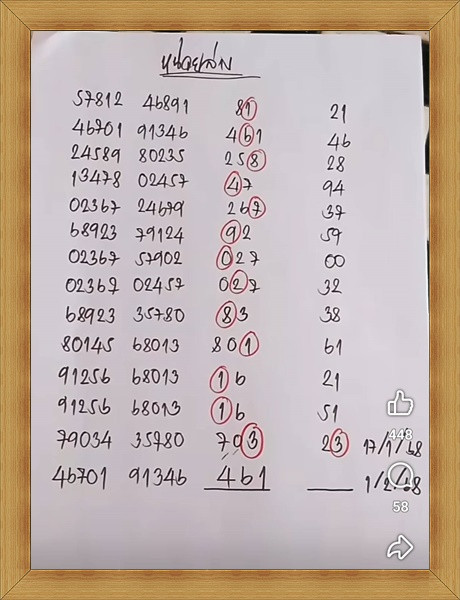 หน่วยล่าง
57812 46891 81 21
46701 91346 461 46
24589 80235 258 28
13478 02457 47 94
02367 24679 267 37
68923 79124 92 59
02367 57902 027 00
02367 02457 027 32
68923 35780 83 38
80145 68013 801 61
91256 68013 16 21
91256 68013 16 51
79034 35780 703 23 17/1/68
46701 91346 461 1/2/68
448
58